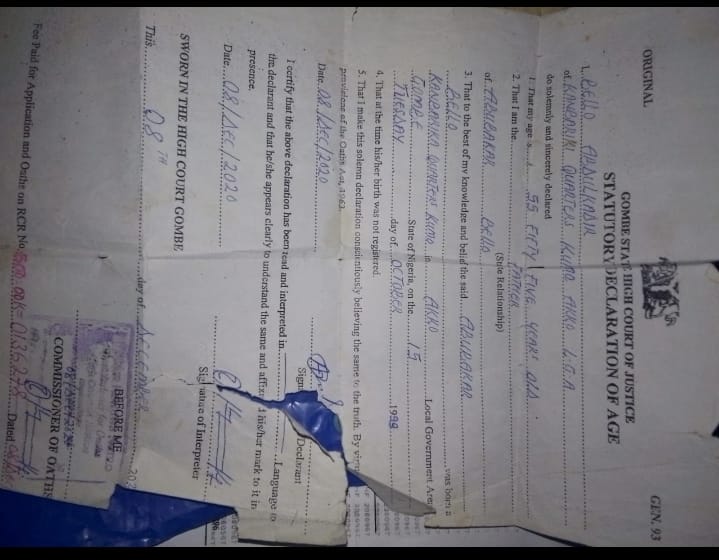 ORIGINAL
GEN. 93
GOMBE STATE HIGH COURT OF JUSTICE
STATUTORY DECLARATION OF AGE
I, BELLO ABDULKADIR
of KANBARIKI QUARTERS KUMO AKKO L.G.A.
do solemnly and sincerely declared
1. That my age s 55 FIFTY FIVE YEARS OLD
2. That I am the FATHER
(State Relationship)
of ABUBAKAR BELLO
3. That to the best of my knowledge and belief the said ABUBAKAR
BELLO was born a
QUARTERS KUMO in AKKO Local Government Area
GOMBE State of Nigeria, on the 15
TUESDAY day of OCTOBER
4. That at the time his/her birth was not registered.
5. That I make this solemn declaration conscientiously believing the same to the truth. By
provisions of the Oaths Act, 1963
Date 08/Dec/2020
Declarant
I certify that the above declaration has been read and interpreted in Language to
the declarant and that he/she appears clearly to understand the same and his/her mark to it in
presence.
Date 08/Dec/2020
Signature of Interpreter
SWORN IN THE HIGH COURT GOMBE
This 08TH day of December
BEFORE ME
COMMISSIONER OF OATHS
Fee Paid for Application and Oaths on RCR No Dated